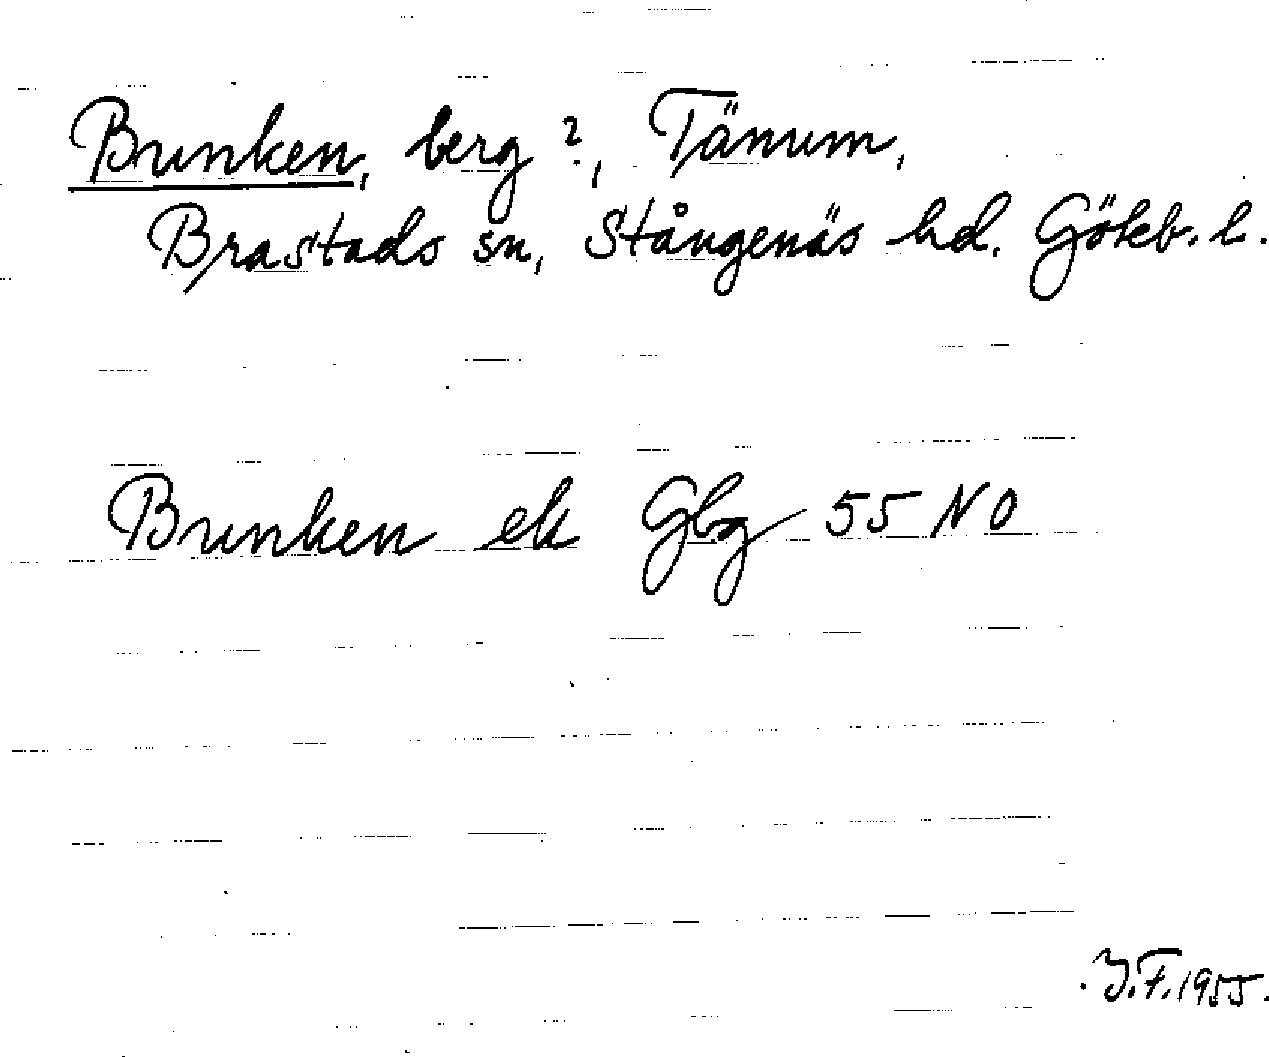 Brunken, berg?, Tänum,
Brastads sn, Stångenäs hd. Göteb. l.
Brunken ek Gbg 55 NO
Y.F. 1955.